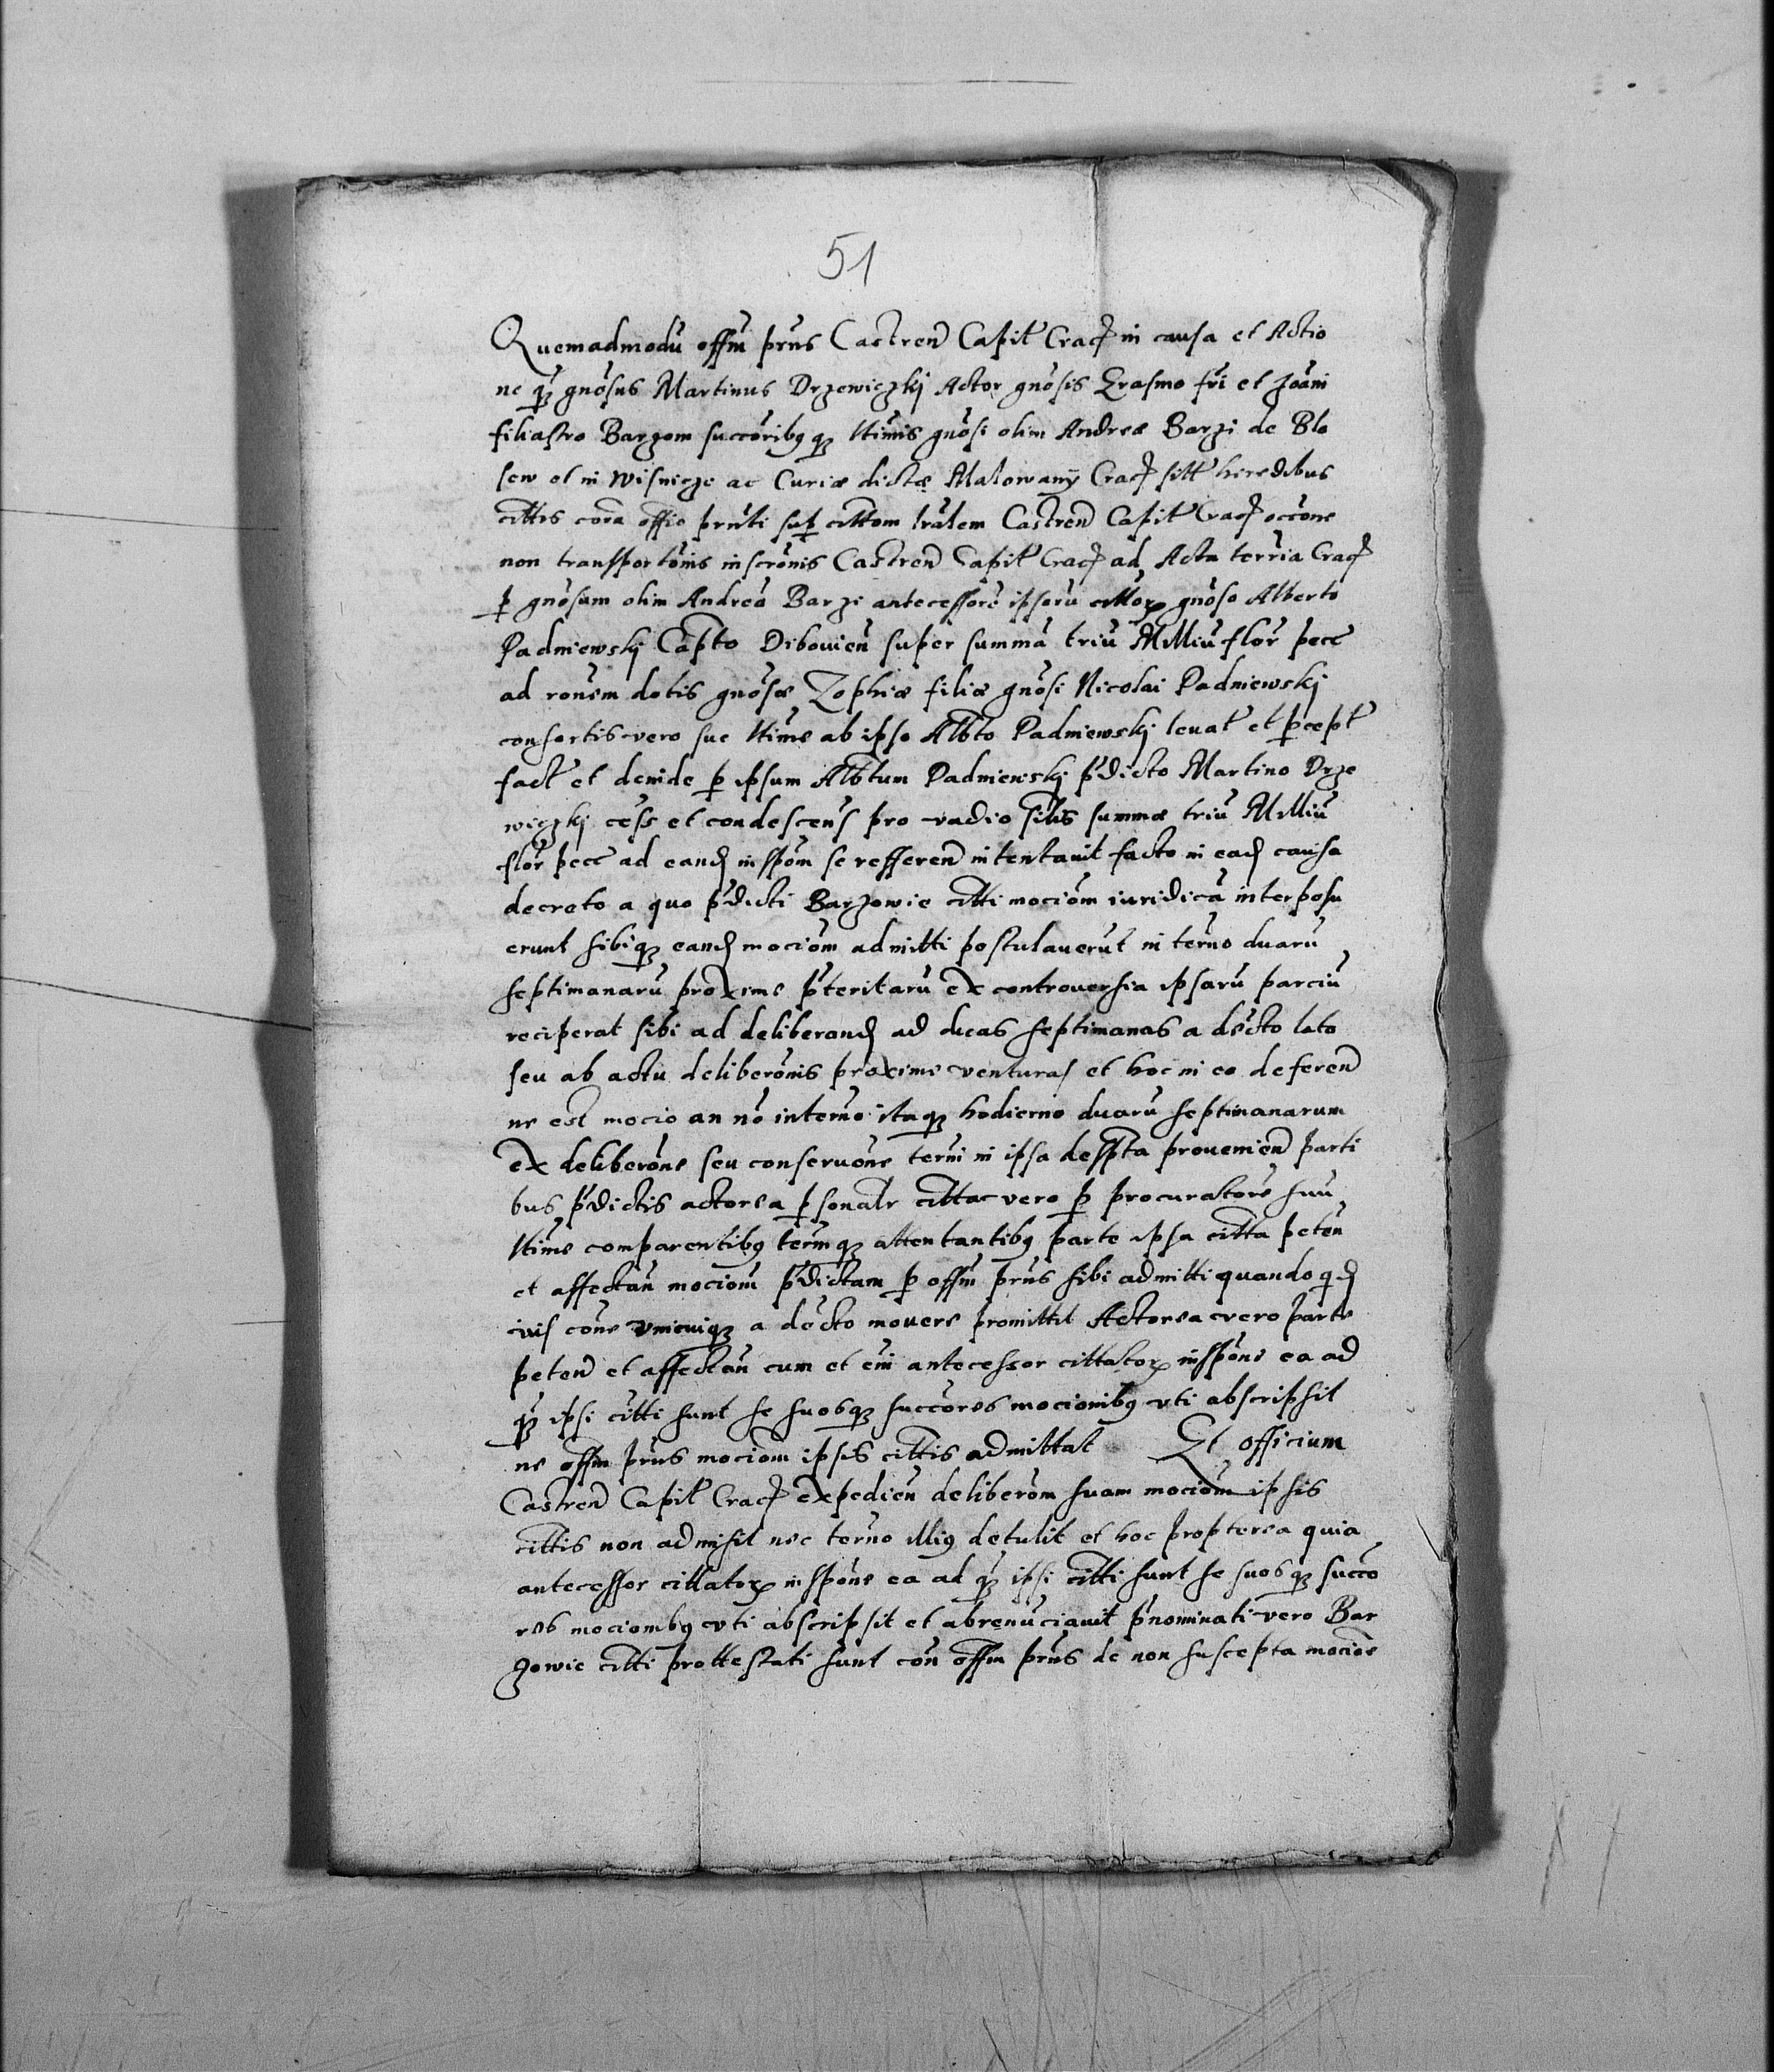 51
Quemadmodū offm̄ prn̄s Castren̄ Capit̄ Crac̄ in causa et Actio
ne q̄ȝ gnōsus Martinus Drzewiczkj Actor gnōsis Erasmo fr̄i et Joān̄i
filiastro Barzom succōribȝ qȝ ltīmis gnōsi olim Andreæ Barzi de Blo
sew et in Wisnicze ac Curiæ dictæ Malowany Crac̄ sitt̄ heredibus
citt̄is corā off̄io prn̄ti sup̱ citt̄om tr̄alem Castren̄ Capit̄ Crac̄ occ̄one
non transportōnis inscrōnis Castren̄ Capit̄ Crac̄ ad Acta terr̄ia Crac̄
p̱ gnōsum olim Andreā Barzi antecessorē ipsorū citt̄oꝝ gnōso Alberto
Padniewskj Capt̄o Dibouien̄ super summā triū Milliū flor̄ pecc̄
ad ronēm dotis gnōsæ Zophiæ filiæ gnōsi Nicolai Padniewskj
consortis vero sue ltīme ab ipso Alb̄to Padniewskj leuat̄ et p̱cept̄
fact̄ et deinde p̱ ipsum Alb̄tum Padniewskj p̄dicto Martino Drze
wiczkj cess̄ et condescens̄ pro vadio sil̄is summæ triū Milliū
flor̄ pecc̄ ad eand̄ inspōm se refferen̄ intentauit facto in ead̄ causa
decreto a quo p̄dicti Barzowie citt̄i mociōm iuridicā interposu
erunt sibiqȝ eand̄ mociōm admitti postulauerūt in ter̄no duarū
septimanarū proxime p̄teritarū ex controuersia ipsarū parciū
reciperat sibi ad deliberand̄ ad duas septimanas a decr̄to lato
seu ab actu deliberōnis proxime venturas et hoc in eo deferen̄
ne est mocio an nō in ter̄no itaqȝ hodierno duarū septimanarum
ex deliberōne seu conseruōne ter̄ni in ipsa des̱pta prouenien̄ parti
bus p̄dictis actorea p̱sonalr̄ citt̄a vero p̱ procuratorē suū
ltīme comparentibȝ ter̄mqȝ attentantibȝ parte ipsa citt̄a peten̄
et affectan̄ mociōm p̄dictam p̱ offm̄ prn̄s sibi admitti quando qd̄
iuis cōne vnicuiqȝ a decr̄to mouere promittit Actorea vero parte
peten̄ et affectan̄ cum et em̄ antecessor cittatoꝝ inspōne ea ad
q̄ȝ ipsi citt̄i sunt se suosqȝ succōres mocionibȝ vti abscripsit
ne offm̄ prn̄s mociōm ipsis citt̄is admittat Et officium
Castren̄ Capit̄ Crac̄ expedien̄ deliberōm suam mociōm ipsis
citt̄is non admisit nec ter̄no illiȝ detulit et hoc propterea quia
antecessor cittatoꝝ inspōne ea ad q̄ȝ ipsi citt̄i sunt se suosqȝ succo
res mocionibȝ vti abscripsit et abrenūciauit p̄nominati vero Bar
zowie citt̄i prottestati sunt con̄ offm̄ prn̄s de non suscepta mociōe